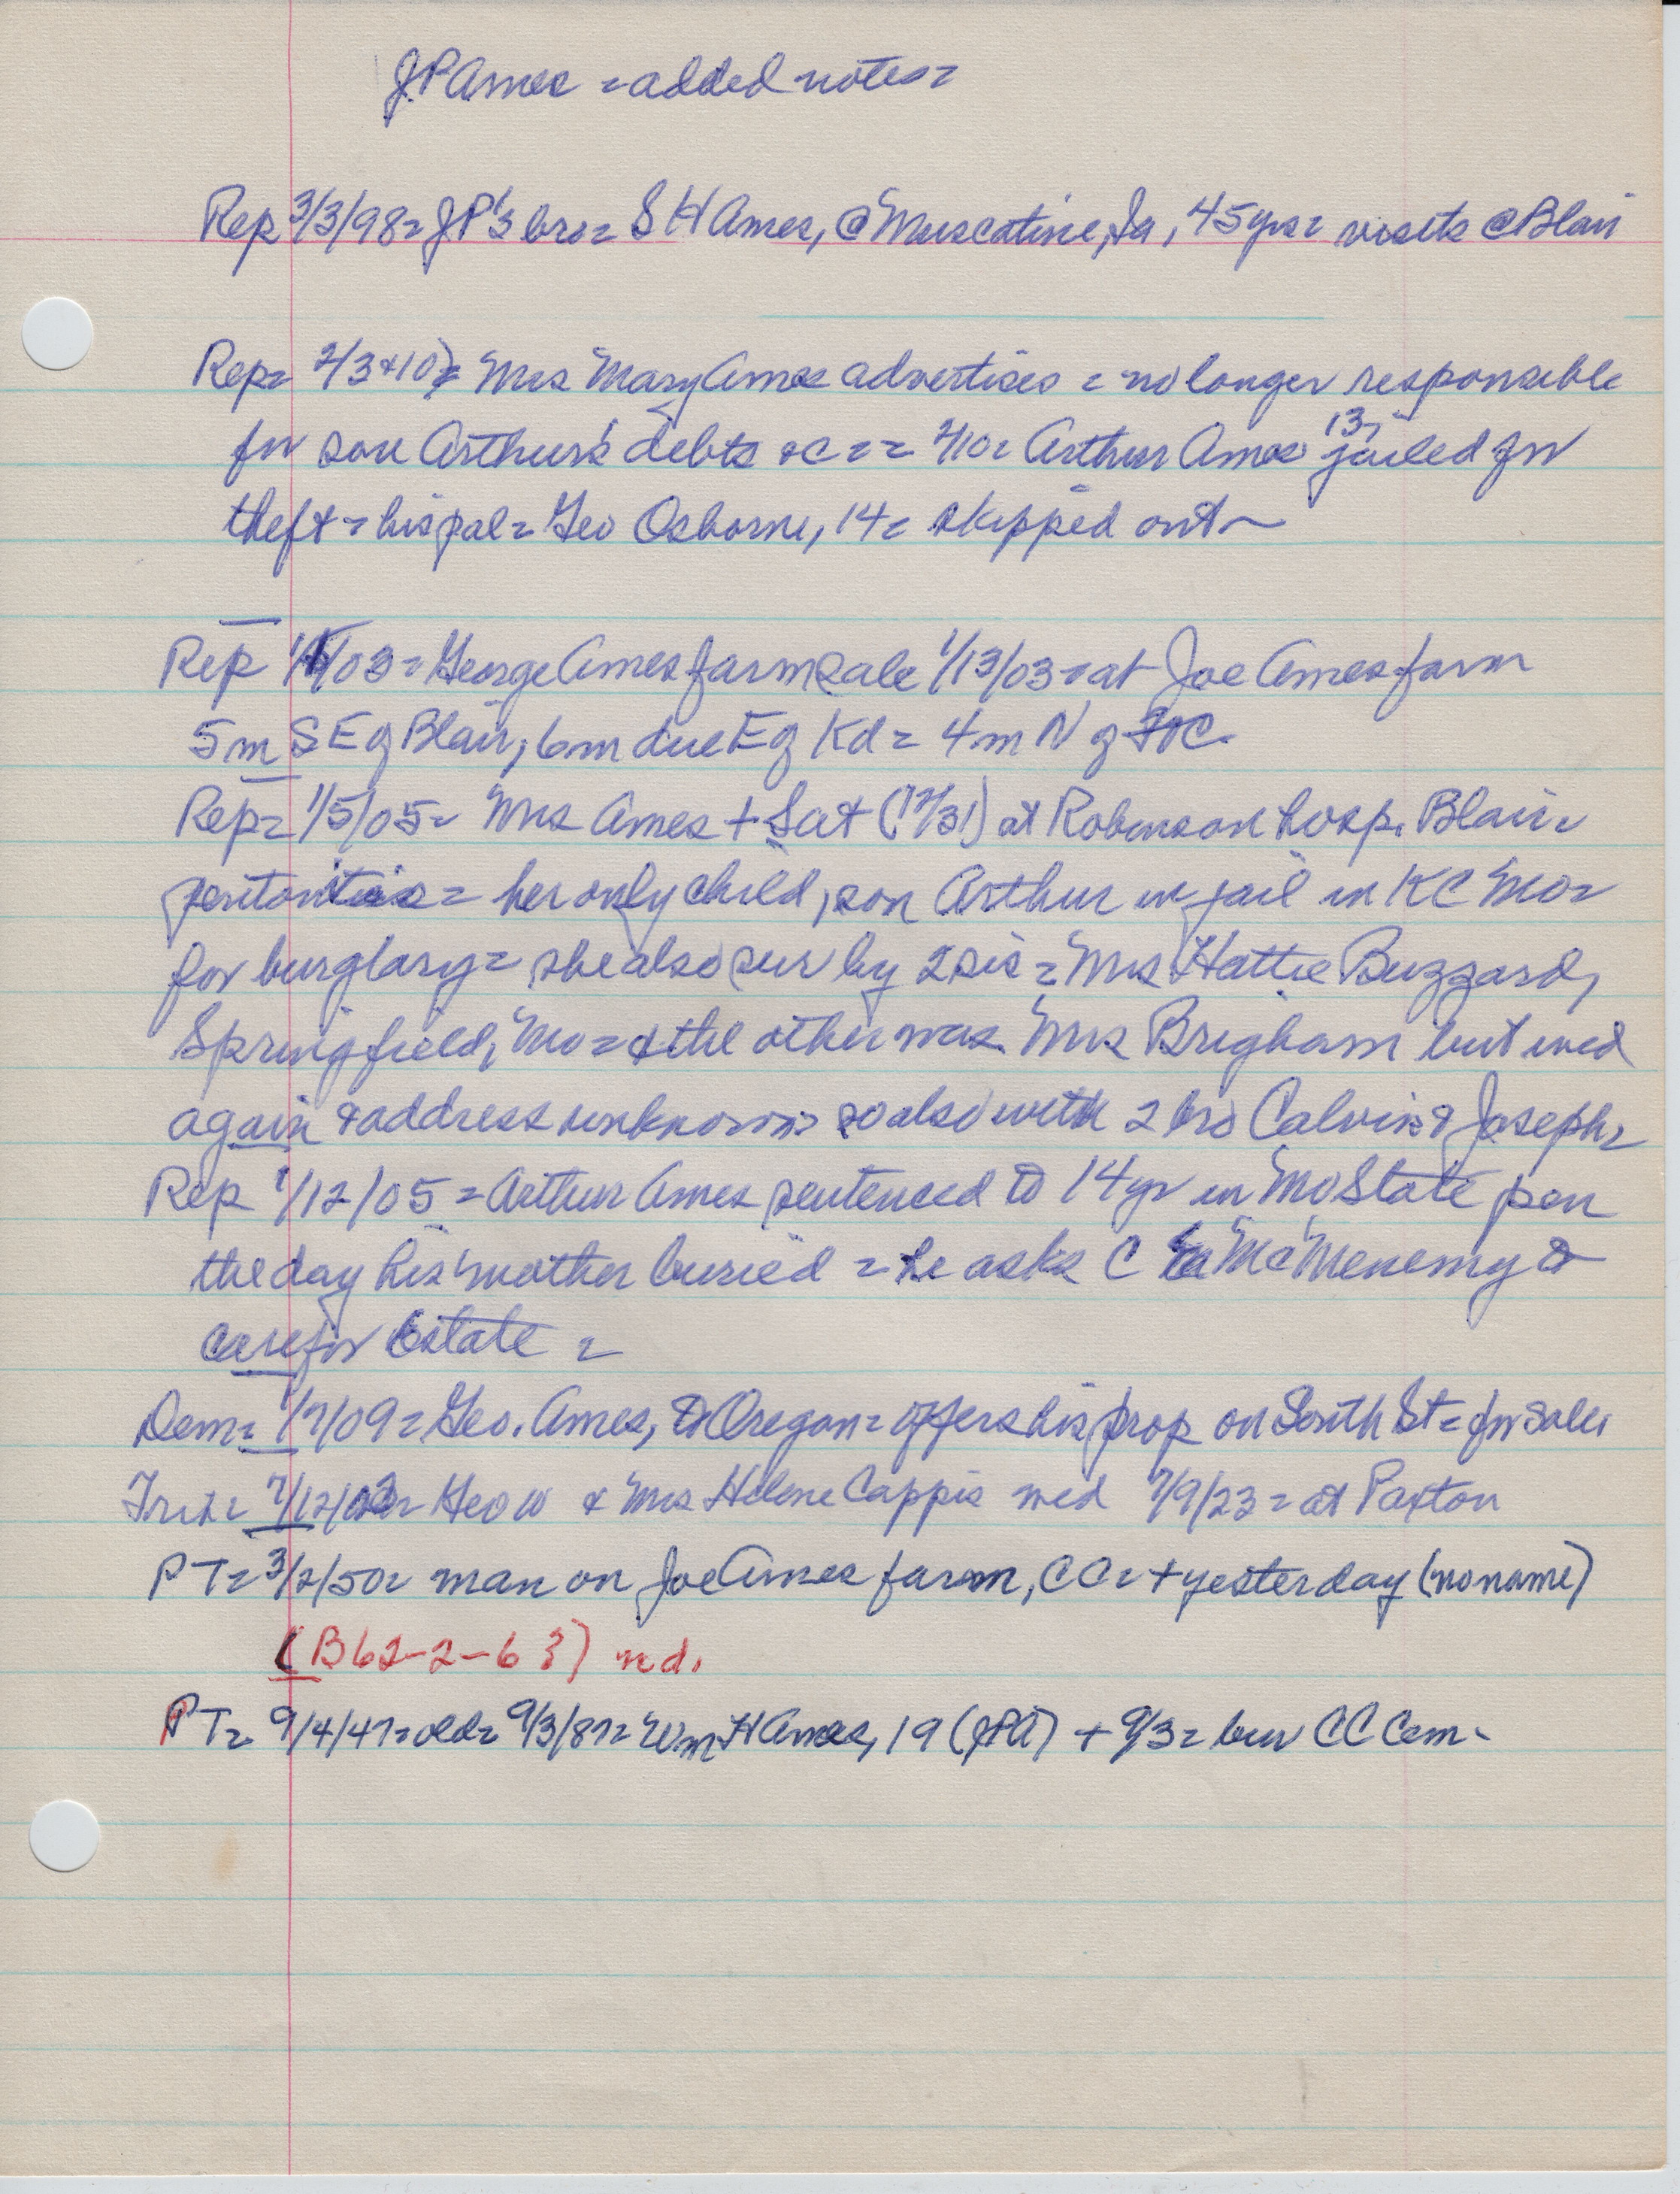 JP Ames = added notes =
Rep 3/3/98 = JP's bro = S H Ames, @ Muscatine, Ia, 45 yrs = visits @ Blair
Rep = 2/3 & 10 = Mrs Mary Ames advertises = no longer responsible
for son Arthur's debts &c = = 2/10 = Arthur Ames 13, jailed for
theft = his pal = Geo Osborne, 14 = skipped out ~
Rep /03 = George Ames farm sale 1/13/03 = at Joe Ames farm
5 m S E of Blair, 6 m due E of Kd = 4 m N of
Rep = 1/5/05 = Mrs Ames + Sat (12/31) at Robinson hosp. Blair =
= her only child, son Arthur in jail in KC Mo =
for burglary = she also sur by 2 sis = Mrs Hattie Buzzard,
Springfield, Mo = & the other was Mrs Brigham but med
again & address unknown = so also with 2 bro Calvin & Joseph =
Rep 1/12/05 = Arthur Ames sentenced to 14 yr in Mo State pen
the day his mother buried = he asks C McMenemy to
care for Estate =
Dem = 1/7/09 = Geo. Ames, Oregon = offers his prop on South St = for sale =
= Geo W & Mrs Helene Cappis med 7/9/23 = at Paxton
PT = 3/2/50 = man on Joe Ames farm, CC = + yesterday (no name)
(B62-2-63) nd.
PT = 9/4/47 = old = 9/3/87 = Wm H Ames, 19 (JPA) + 9/3 = bur CC Cem -